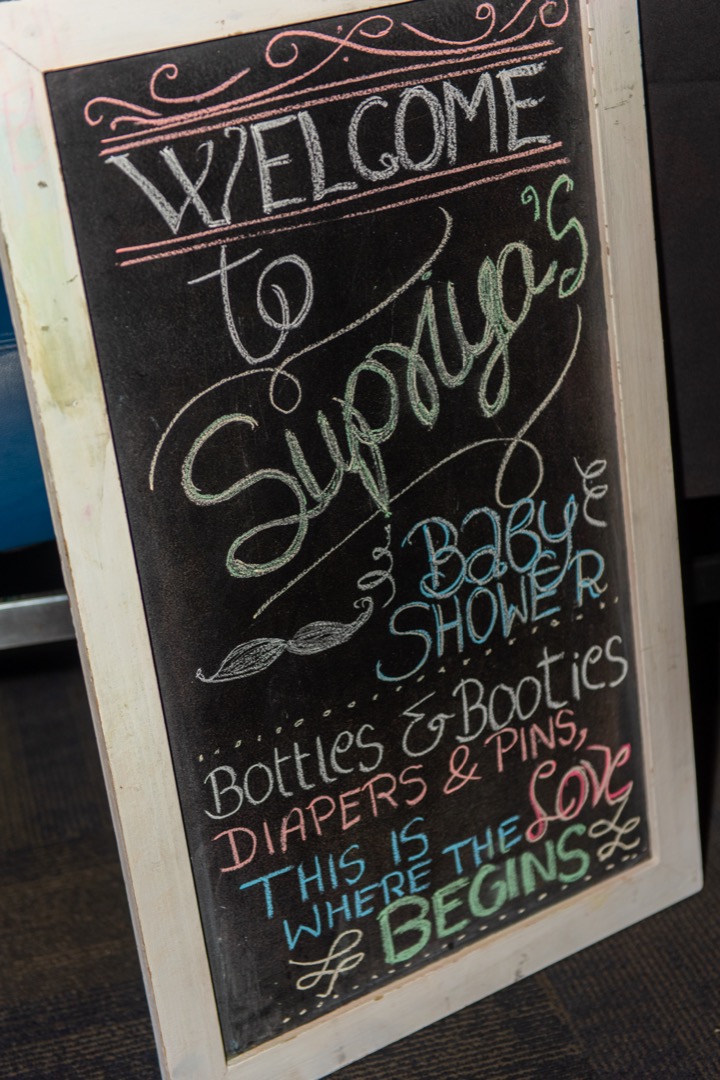 WELCOME
to
Supriya's
BaBy
SHOWER
Bottles & Booties
DIAPERS & PINS,
THIS IS
WHERE THE LOVE
BEGINS